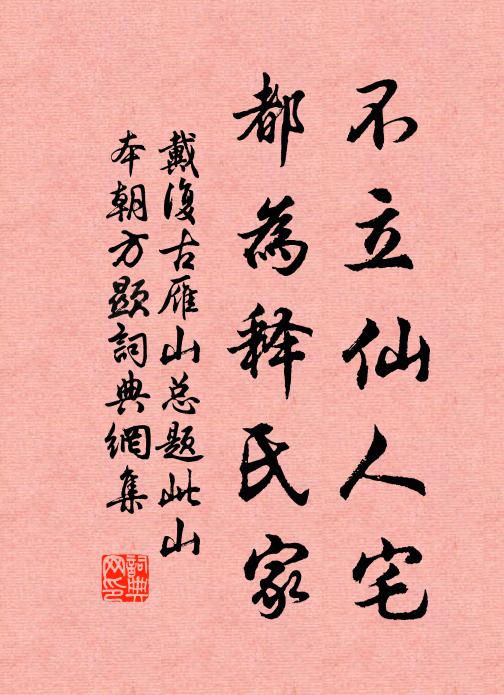 不立仙人宅
都為释氏家
戴復古雁山总题此山
本朝方顕詞典網集
詞典网印